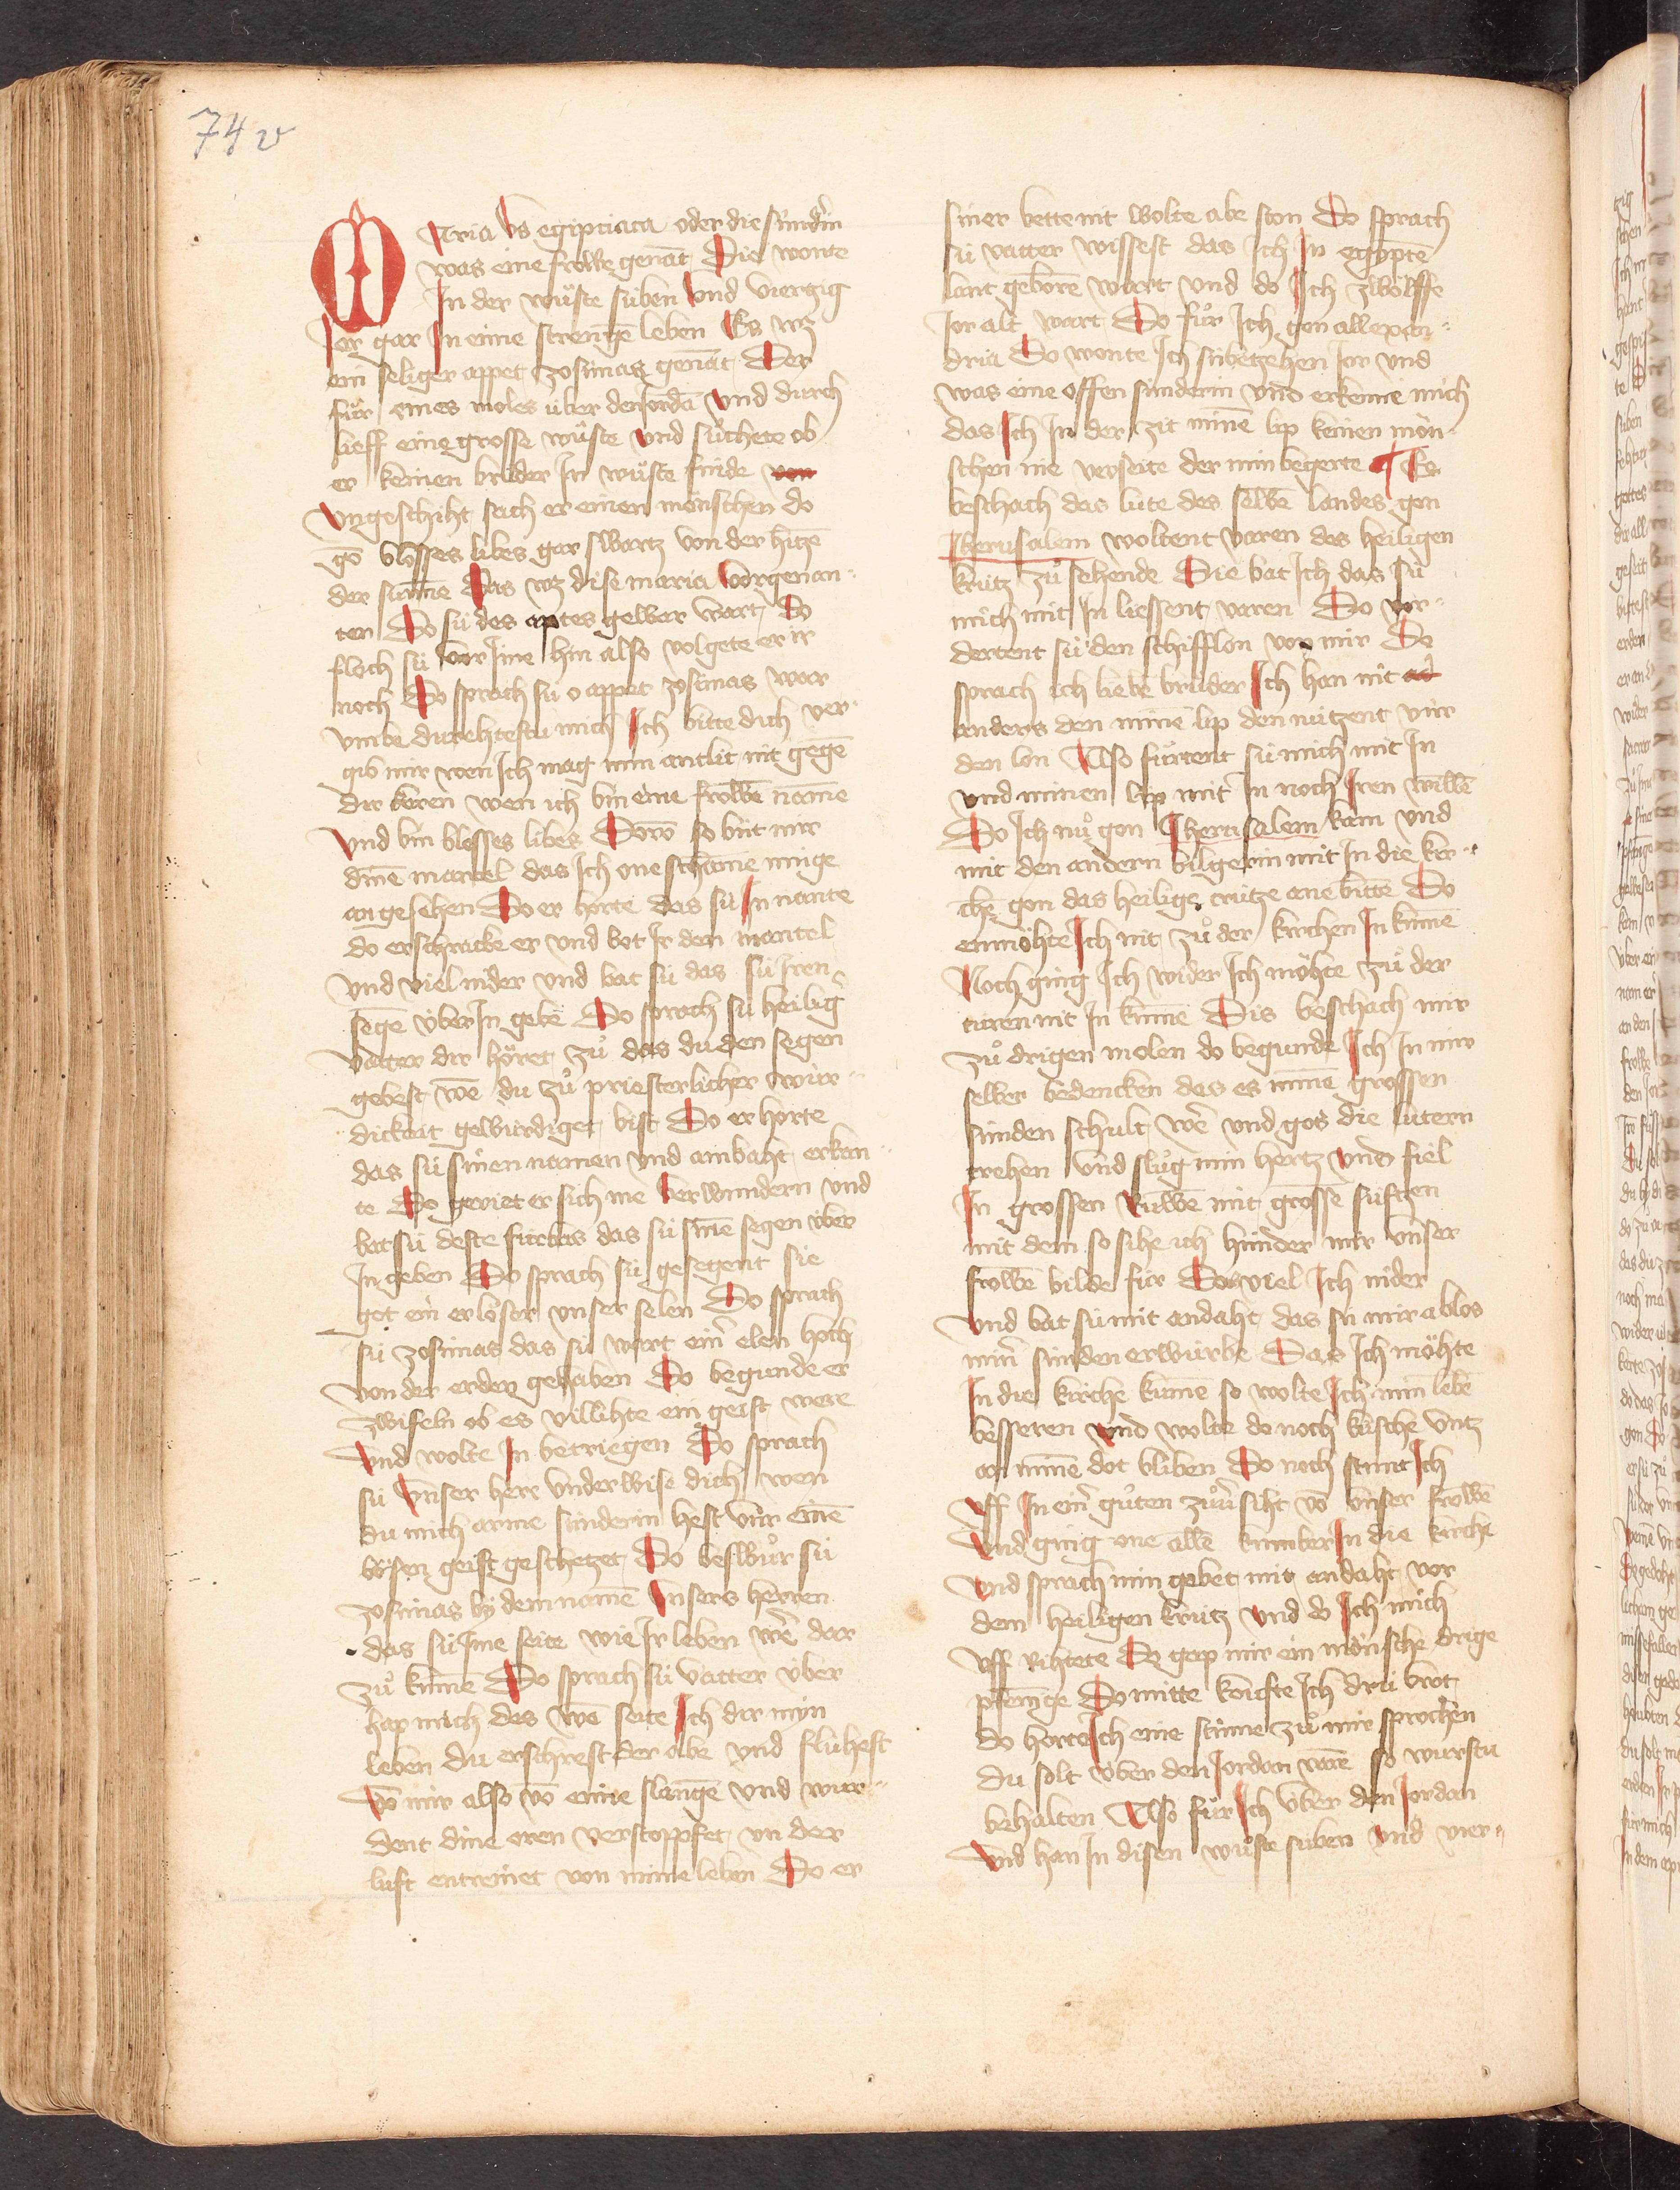 74 v
Maria vs egiptiaca oder die sunderin
was eine frowe genāt Die wonte
In der wuͤste suben vnd viertzig
Ior gar In eime strenge leben Es wz
ein seliger appet zosimas genāt Der
fuͦr eines moles über den Iordā vnd durch
lieff eine grosse wuͤste vnd suͦchete ob
er keinen bruder In wuͤste finde
vngeschiht sach er einen mönschen do
gō blosses libes gar swartz von der hitze
der sunne Das wz dise maria vorgenan-
ten Do sü des aptes gewar wart Do
floch sü vor Ime hin also volgete er ir
noch Do sprach sü o appet zosimas war
vmbe durehtestu mich Ich bitte dich ver-
gib mir wen Ich mag min antlit nit gegē
dir keren wen ich bin eine frowē namē
vnd bin blosses libes Dorō so büt mir
dinē mantel das Ich one schame muge
an gesehen Do er horte das sü In nante
do erschracke er vnd bot Ir den mantel
vnd viel nider vnd bat sü das sü Iren
segē über In gebe Do sprach sü heilig̉
vatter dir höret zuͦ das du den segen
gebest wē du zuͦ priesterlicher wür-
dickeit gewürdiget bist Do er horte
das sü sinen namen vnd ambaht erkan-
te Do geviet er sich me verwundern vnd
bat sü deste fürbas das sü sinē segen über
In geben Do sprach sü gesegent sie
got ein erlöser vnser selen Do sprach
sü zosimas das sü wart ein̉ elen hoch
von der erden gehaben Do begunde er
zwifeln ob es villihte ein geist were
vnd wolte In betriegen Do sprach
sü vnser herr vnderwise dich wen
du mich arme sünderin hest vür einē
bösen geist geschetzet Do beswuͦr sü
zosimas by dem namē vnsers herren
das sü Ime seite wie Ir leben wē dar
zuͦ kumē Do sprach sü vatter über
hap mich des wē seite Ich dir myn
leben du erschrest der abe vnd flühest
vō mir also vō eime slangē vnd wur-
dent dine oren verstoppfet vn der
luft entreinet von mime leben Do er
siner bette nit wolte abe ston Do sprach
sü vatter wissest das Ich In egyptē
lant geborē wart vnd do Ich zwölffe
Ior alt wart Do fuͦr Ich gon allexan-
dria Do wonte Ich sübētzehen Ior vnd
was eine offen sunderin vnd erkenne mich
das Ich In der zit minē lip keinen mön-
schen nie verseite der min begerte Es
beschach das lüte des selbē landes gon
Iherusalem woltent varen das heiligen
krutz zuͦ sehende Die bat Ich das sü
mich mit In liessent varen Do vor-
dertent sü den schifflon von mir Do
sprach ich liebē brüder Ich han nit
anders den minē lip den nützent vür
den lon Also fürtent sü mich mit In
vnd minen lip mit In noch Iren willē
Do Ich nuͦ gon Iherusalem kam vnd
mit den andern bilgerin mit In die kir-
chē gon das heilige crutze ane bitte Do
enmöhte Ich nit zuͦ der kirchen In kumē
Noch ging Ich wider Ich möhte zuͦ der
türen nit In kumē Dis beschach mir
zuͦ drigen molen do begunde Ich In mir
selber bedencken das es mine grossen
sünden schult wē vnd gos die lutern
trehen vnd sluͦg min hertz vnd fiel
In grossen ruwē mit grosse süftzen
mit dem so sihe ich hünder mir vnser
frowē bilde für Do viel Ich nider
vnd bat sü mit andaht das sü mir ablos
min̉ sünden erwürbe Das Ich möhte
In die kirche kumē so wolte Ich min lebē
besseren vnd wolte do noch küsche vntz
an minē dot bliben Do noch stunt Ich
vff In ein̉ guͦten zuͦv̉siht vō vnser frowē
vnd ging one allē kumber In die kirche
vnd sprach min gebet mit andaht vor
dem heiligen krütz vnd do Ich mich
vff rihtete Do gap mir ein mönsche drige
pfennige Do mitte koufte Ich drü brot
do horte Ich eine stimme zuͦ mir sprechen
du solt über den Iordan varē so wurstu
behalten Also fuͦr Ich über den Iordan
vnd han In disen wuͤste süben vnd vier-